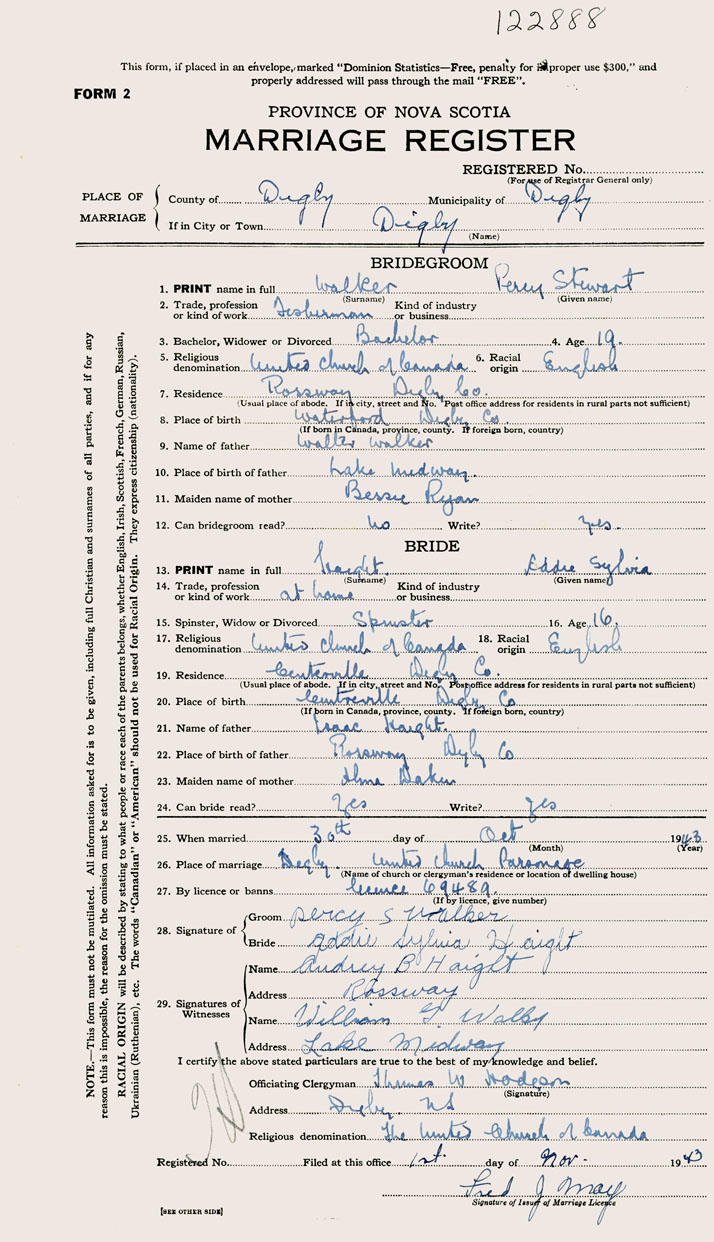 122888
This form, if placed in an envelope, marked "Dominion Statistics—Free, penalty for improper use $300," and
properly addressed will pass through the mail "FREE".
FORM 2
PROVINCE OF NOVA SCOTIA
MARRIAGE REGISTER
REGISTERED No.
(For use of Registrar General only)
PLACE OF MARRIAGE
County of Digby Municipality of Digby
If in City or Town Digby
(Name)
BRIDEGROOM
1. PRINT name in full Walker Percy Stewart
(Surname) (Given name)
2. Trade, profession or kind of work Fisherman Kind of industry or business
3. Bachelor, Widower or Divorced Bachelor 4. Age 19.
5. Religious denomination United Church of Canada 6. Racial origin English
7. Residence Rossway Digby Co.
(Usual place of abode. If in city, street and No. Post office address for residents in rural parts not sufficient)
8. Place of birth Waterford Digby Co.
(If born in Canada, province, county. If foreign born, country)
9. Name of father Walter Walker
10. Place of birth of father Lake Midway.
11. Maiden name of mother Bessie Ryan
12. Can bridegroom read? no Write? yes.
BRIDE
13. PRINT name in full Haight Eddie Sylvia
(Surname) (Given name)
14. Trade, profession or kind of work at home Kind of industry or business
15. Spinster, Widow or Divorced Spinster 16. Age 16.
17. Religious denomination United Church of Canada 18. Racial origin English
19. Residence Centerville Digby Co.
(Usual place of abode. If in city, street and No. Post office address for residents in rural parts not sufficient)
20. Place of birth Centreville Digby Co
(If born in Canada, province, county. If foreign born, country)
21. Name of father Isaac Haight.
22. Place of birth of father Rossway Digby Co
23. Maiden name of mother Alma Dakin
24. Can bride read? Yes Write? yes
25. When married 30th day of Oct 1943
(Month) (Year)
26. Place of marriage Digby. United Church Parsonage
(Name of church or clergyman's residence or location of dwelling house)
27. By licence or banns licence 69489.
(If by licence, give number)
28. Signature of
Groom Percy S Walker
Bride Addie Sylvia Haight
29. Signatures of Witnesses
Name Audrey B Haight
Address Rossway
Name William G Walby
Address Lake Midway
I certify the above stated particulars are true to the best of my knowledge and belief.
Officiating Clergyman Thomas W Hodgson
(Signature)
Address Digby. NS
Religious denomination The United Church of Canada
Registered No. Filed at this office 1st. day of Nov. 1943
Fred J May
Signature of Issuer of Marriage Licence
[SEE OTHER SIDE]
NOTE.—This form must not be mutilated. All information asked for is to be given, including full Christian and surnames of all parties, and if for any
reason this is impossible, the reason for the omission must be stated.
RACIAL ORIGIN will be described by stating to what people or race each of the parents belongs, whether English, Irish, Scottish, French, German, Russian,
Ukrainian (Ruthenian), etc. The words "Canadian" or "American" should not be used for Racial Origin. They express citizenship (nationality).